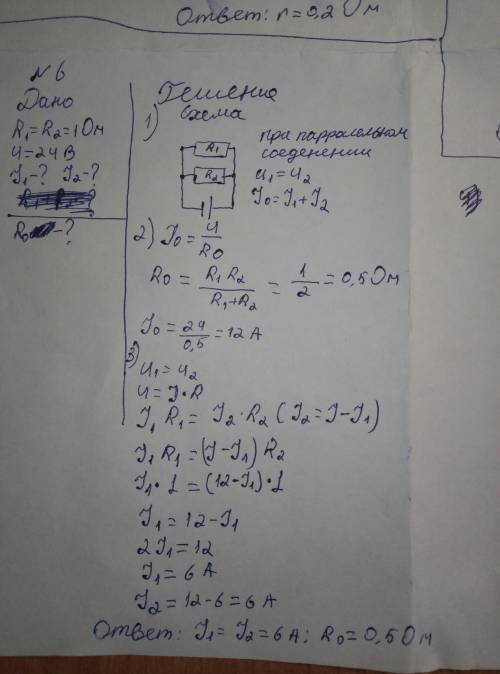 Ответ: r = 0,2 Ом
№ 6
Дано
R₁=R₂=1 Ом
U=24 В
I₁-? I₂-?
R₀ -?
Решение
1) Схема
R₁
R₂
при парралольном
соеденении
U₁=U₂
I₀=I₁+I₂
2) I₀=U/R₀
R₀ = R₁R₂/(R₁+R₂) = 1/2 = 0,5 Ом
I₀ = 24/0,5 = 12 А
3)
U₁=U₂
U=I·R
I₁R₁= I₂·R₂ (I₂=I-I₁)
I₁R₁=(I-I₁)R₂
I₁·1=(12-I₁)·1
I₁=12-I₁
2I₁=12
I₁=6 А
I₂=12-6=6 А
Ответ: I₁=I₂=6 А; R₀=0,5 Ом